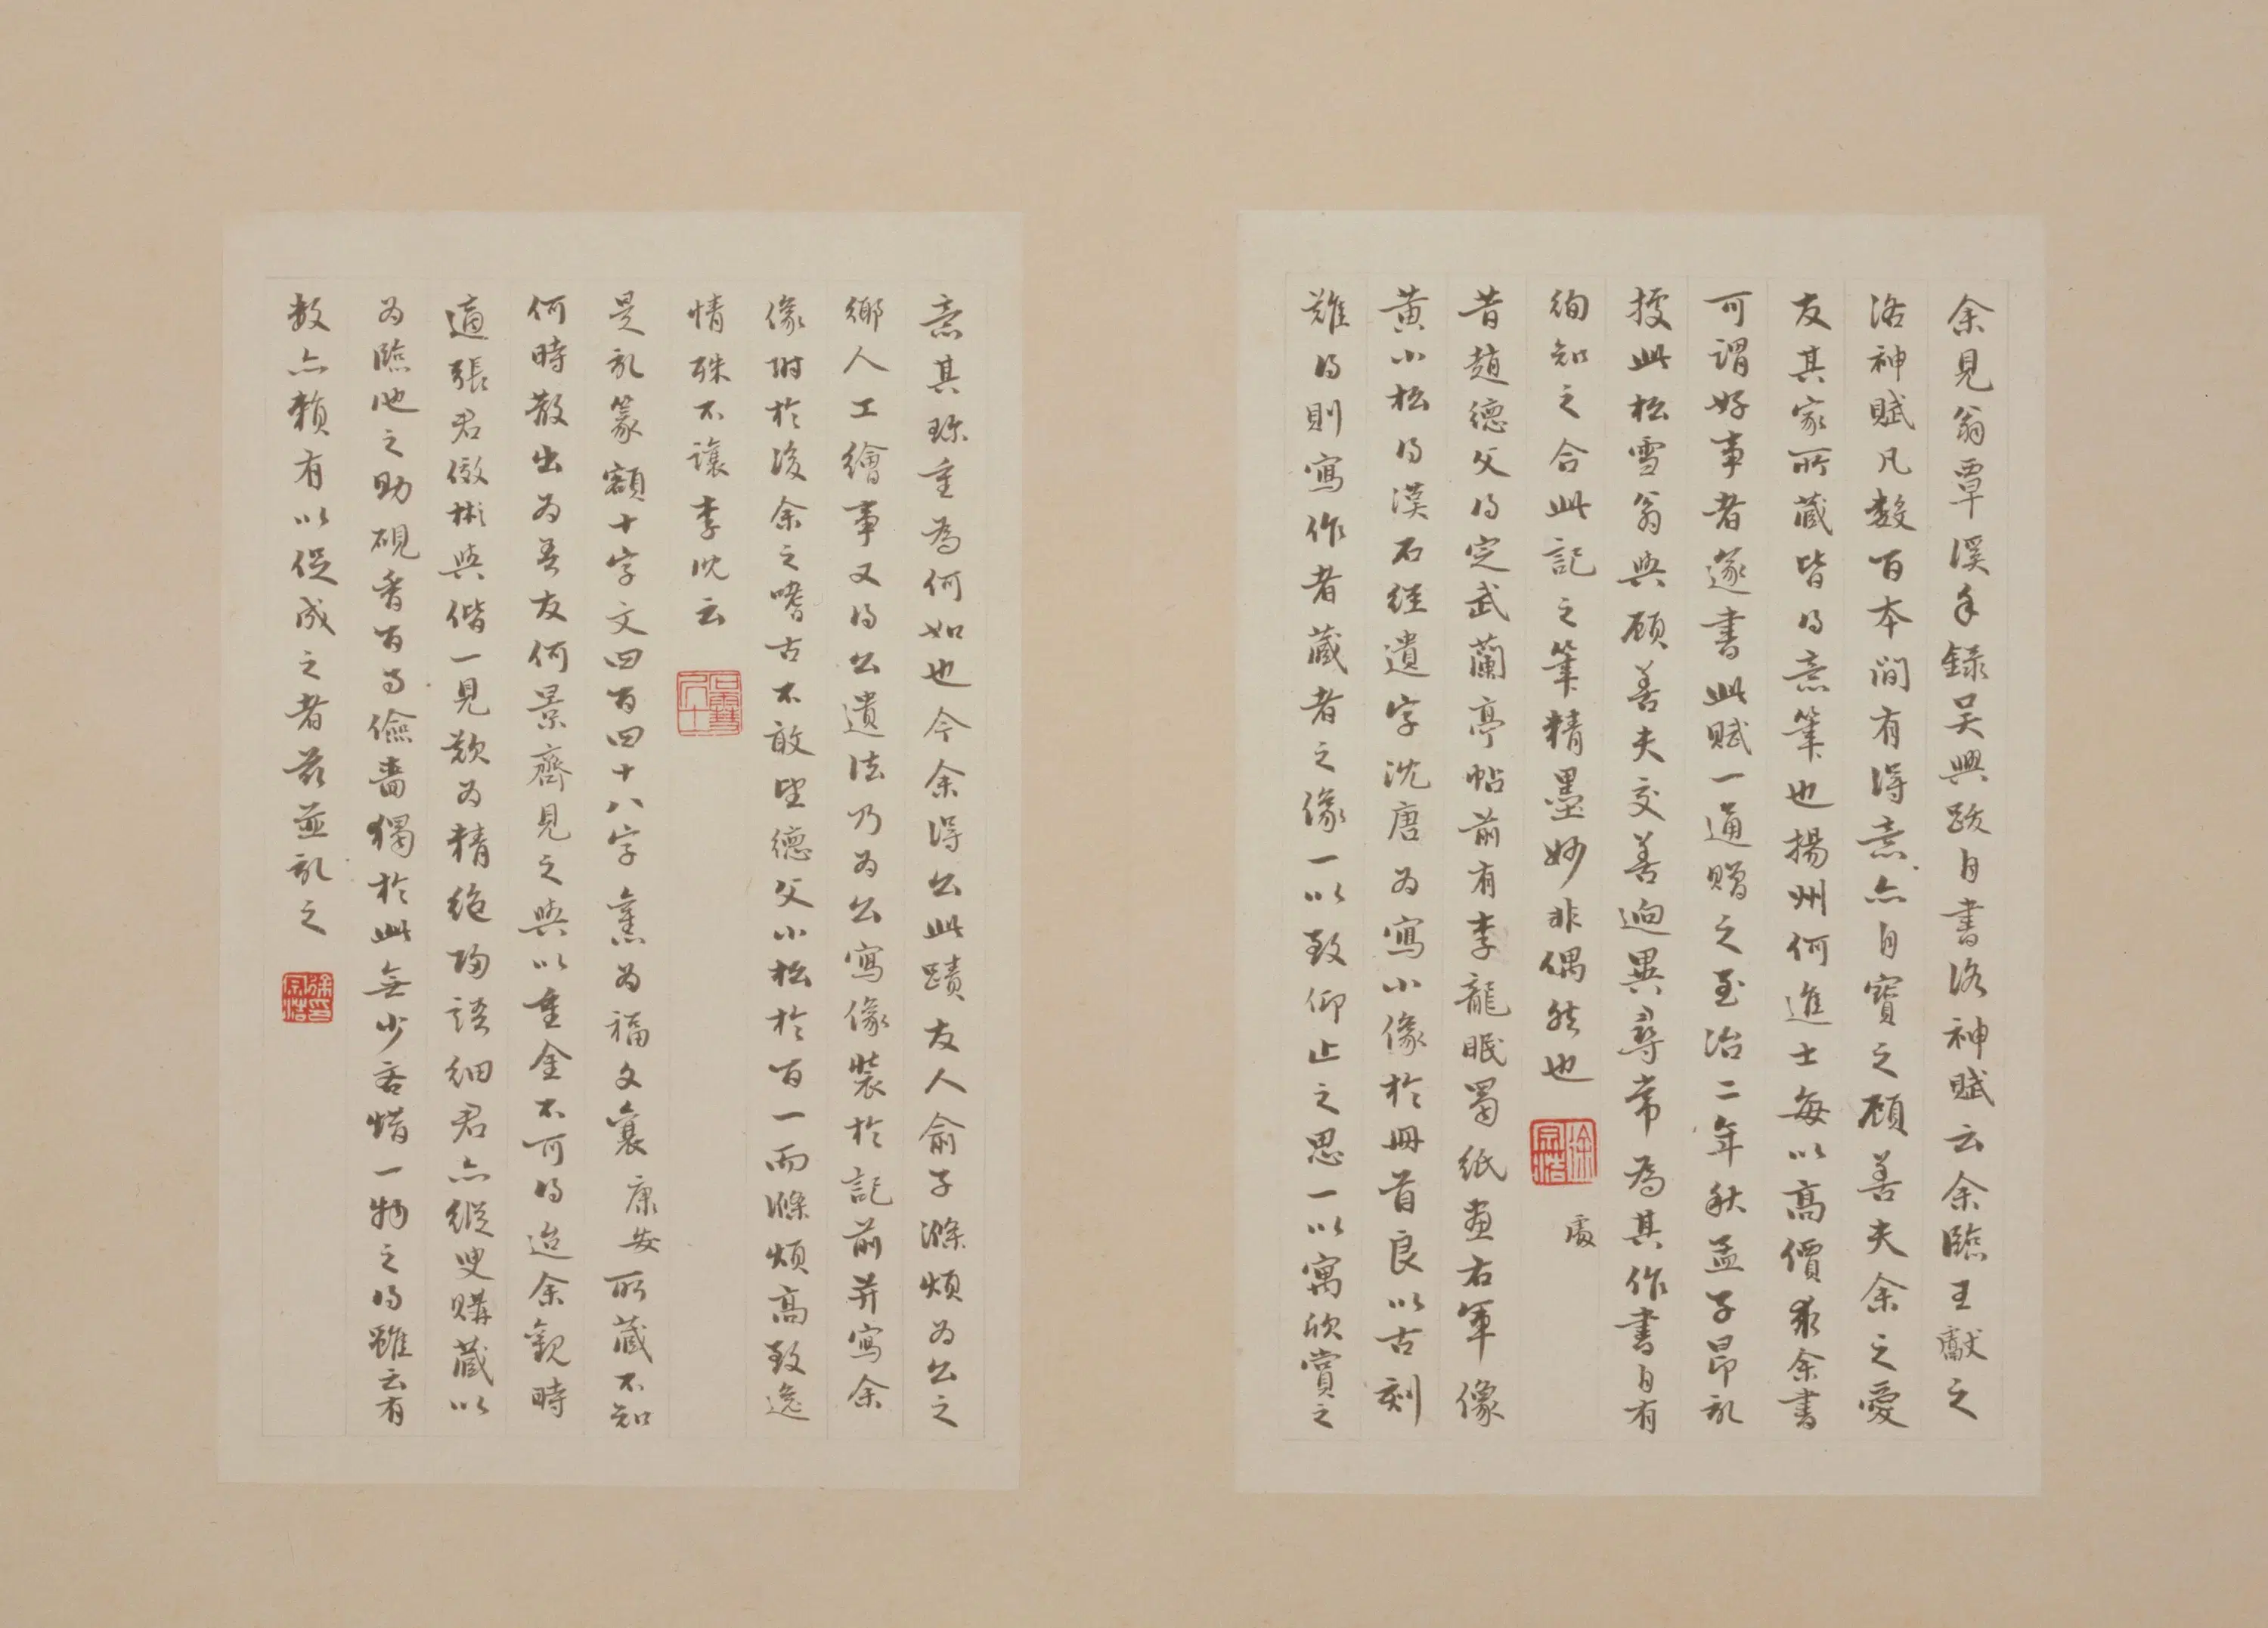 余見翁覃溪手錄吳興跋自書洛神賦云余臨王獻之
洛神賦凡數百本間有得意亦自寶之顧善夫余之愛
友其家所藏皆得意筆也揚州何進士每以高價求余書
可謂好事者遂書此賦一通贈之至治二年秋孟子昂記
據此松雪翁與顧善夫交善迥異尋常為其作書自有
絢知之合此記之筆精墨妙非偶然也 徐宗浩 處
昔趙德父得定武蘭亭帖前有李龍眠蜀紙畫右軍像
黃小松得漢石經遺字沈唐為寫小像於冊首良以古刻
難得則寫作者藏者之像一以致仰止之思一以寓欣賞之
意其珍重為何如也今余得公此蹟友人俞子滌煩為公之
鄉人工繪事又得公遺法乃為公寫像裝於記前并寫余
像附於後余之嗜古不敢望德父小松於百一而滌煩高致逸
情殊不讓李沈云 石雪居士
是記篆額十字文四百四十八字舊為福文襄康安所藏不知
何時散出為吾友何景齊見之與以重金不可得迨余觀時
適張君效彬與偕一見歎為精絕歸語細君亦縱臾購藏以
為臨池之助硯香百事儉嗇獨於此無少吝惜一物之得雖云有
數亦賴有以促成之者茲並記之 徐宗浩印